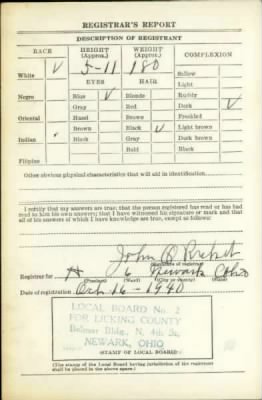 REGISTRAR'S REPORT
DESCRIPTION OF REGISTRANT
RACE HEIGHT (Approx.) WEIGHT (Approx.) COMPLEXION
White ✓ 5-11 180 Sallow
EYES HAIR Light
Negro Blue ✓ Blonde Ruddy
Gray Red Dark ✓
Oriental Hazel Brown Freckled
Brown Black ✓ Light brown
Indian Black Gray Dark brown
Bald Black
Filipino
Other obvious physical characteristics that will aid in identification
I certify that my answers are true; that the person registered has read or has had
read to him his own answers; that I have witnessed his signature or mark and that
all of his answers of which I have knowledge are true, except as follows:
John
(Signature of registrar)
Registrar for A 6 Newark Ohio
(Precinct) (Ward) (City or county) (State)
Date of registration Oct-16-1940
LOCAL BOARD No. 2
FOR LICKING COUNTY
Belmar Bldg., N. 4th St.
NEWARK, OHIO
(STAMP OF LOCAL BOARD)
(The stamp of the Local Board having jurisdiction of the registrant
shall be placed in the above space.)